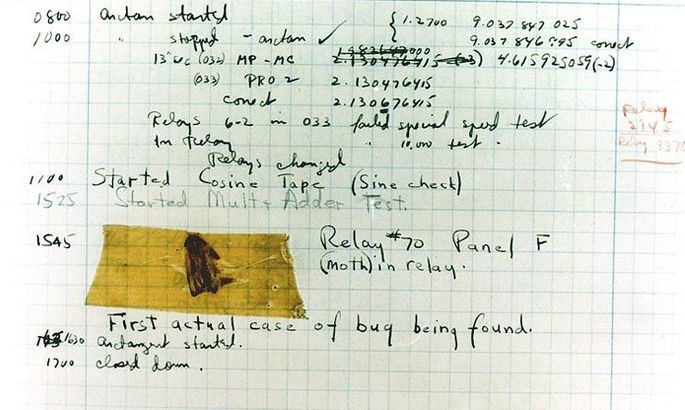 0800 arctan started { 1.2700 9.037 847 025
1000 " stopped - arctan ✓ 9.037 846 995 correct
13" sec (032) MP - MC 2.130476415 (-3) 4.615925059(-2)
(033) PRO 2 2.130476415
correct 2.130676415
Relays 6-2 in 033 failed special speed test
In Relay " 10,000 test.
Relay
2145
Relay 3370
Relays changed
1100 Started Cosine Tape (Sine check)
1525 Started Mult+ Adder Test.
1545 Relay #70 Panel F
(moth) in relay.
First actual case of bug being found.
1630 arctangent started.
1700 closed down.